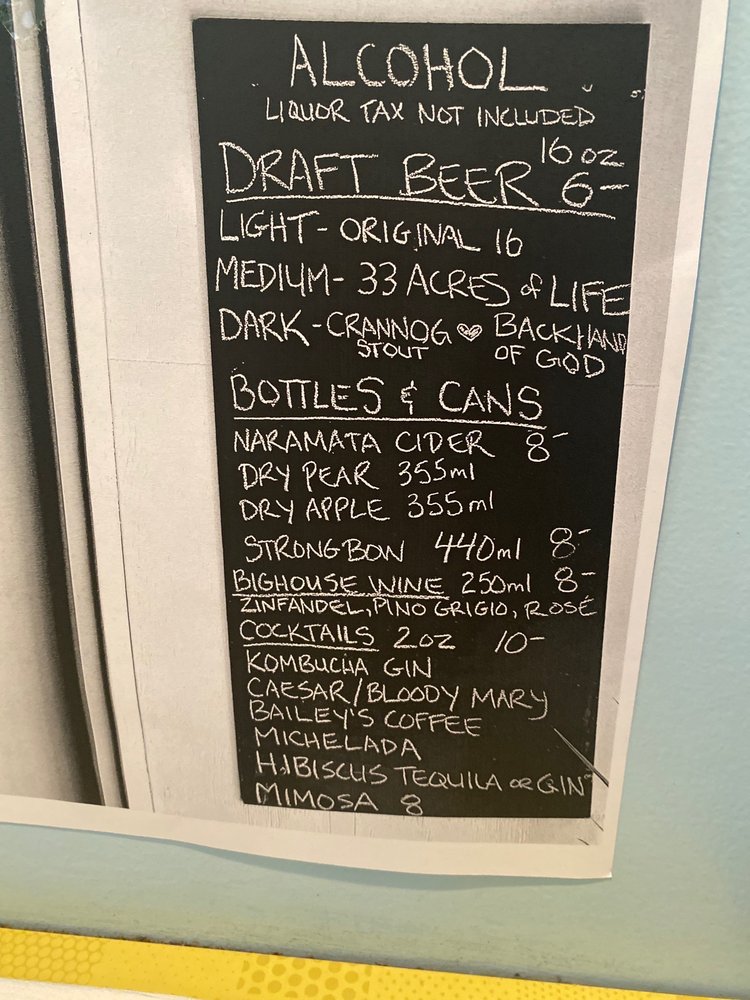 ALCOHOL
LIQUOR TAX NOT INCLUDED
16 oz
DRAFT BEER 6-
LIGHT- ORIGINAL 16
MEDIUM- 33 ACRES of LIFE
DARK - CRANNOG ♥ BACKHAND
STOUT OF GOD
BOTTLES & CANS
NARAMATA CIDER 8-
DRY PEAR 355ml
DRY APPLE 355ml
STRONGBOW 440ml 8-
BIGHOUSE WINE 250ml 8-
ZINFANDEL, PINO GRIGIO, ROSÉ
COCKTAILS 2oz 10-
KOMBUCHA GIN
CAESAR/BLOODY MARY
BAILEY'S COFFEE
MICHELADA
HIBISCUS TEQUILA OR GIN
MIMOSA 8